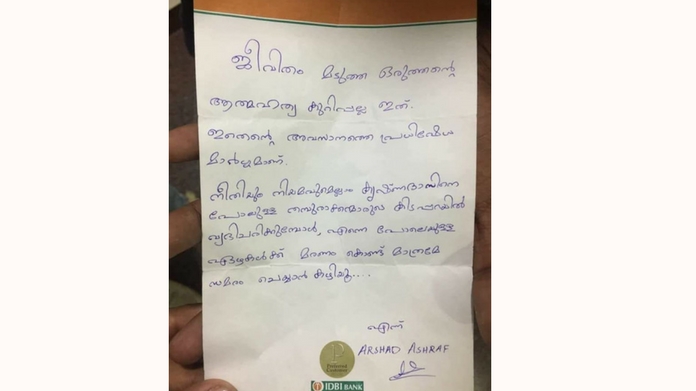 ജീവിതം മടുത്ത ഒരുത്തന്റെ
ആത്മഹത്യ കുറിപ്പല്ല ഇത്.
ഇതെന്റെ അവസാനത്തെ പ്രതിഷേധ
മാർഗ്ഗമാണ്.
നീതിയും നിയമവുമെല്ലാം കൃഷ്ണദാസിനെ
പോലുള്ള തമ്പുരാക്കന്മാരുടെ കിടപ്പറയിൽ
വ്യഭിചരിക്കുമ്പോൾ, എന്നെ പോലെയുള്ള
ഏഴകൾക്ക് മരണം കൊണ്ട് മാത്രമേ
സമരം ചെയ്യാൻ കഴിയൂ....
എന്ന്
ARSHAD ASHRAF
Preferred
Customer
IDBI BANK